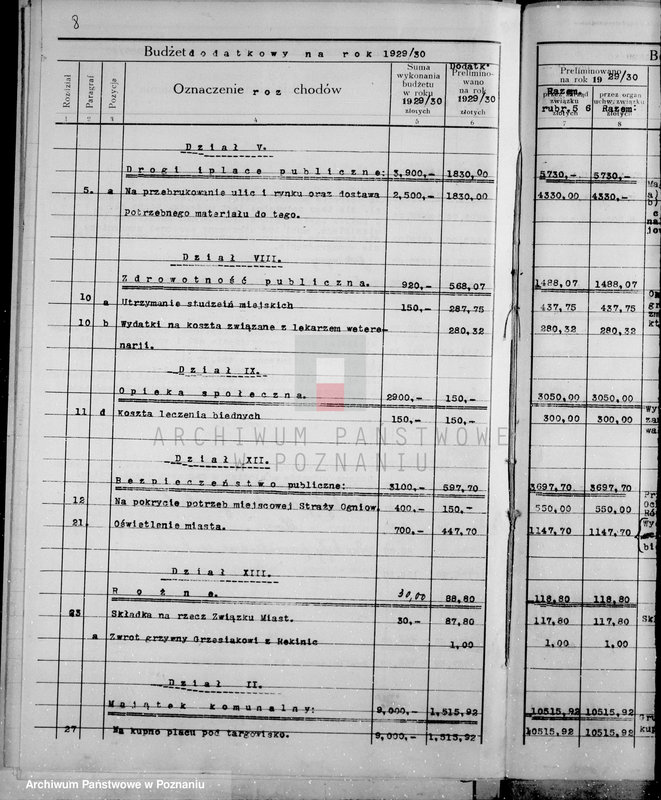 8
Budżet dodatkowy na rok 1929/30
Rozdział
Paragraf
Pozycja
Oznaczenie roz chodów
Suma wykonania budżetu w roku 1929/30 złotych
Dodatk. Prelimino- wano na rok 1929/30 złotych
Preliminowano na rok 1929/30
Razem rubr. 5 6 złotych
przez organ uchw. związku Razem: złotych
1 2 3 4 5 6 7 8
Dział V.
Drogi iplace publiczne: 3,900,- 1830,00 5730,- 5730,-
5. a Na przebrukowanie ulic i rynku oraz dostawa 2,500,- 1830,00 4330.00 4330,-
potrzebnego materjału do tego.
Dział VIII.
Zdrowotność publiczna. 920,- 568,07 1488,07 1488,07
10 a Utrzymanie studzień miejskich 150,- 287,75 437,75 437,75
10 b Wydatki na koszta związane z lekarzem wetere- 280,32 280,32 280,32
narii.
Dział IX.
Opieka społeczna. 2900,- 150,- 3050,00 3050,00
11 d Koszta leczenia biednych 150,- 150,- 300,00 300,00
Dział XII.
Bezpieczeństwo publiczne: 3100,- 597,70 3697,70 3697,70
12 Na pokrycie potrzeb miejscowej Straży Ogniow. 400,- 150,- 550,00 550,00
21. Oświetlenie miasta. 700,- 447,70 1147,70 1147,70
Dział XIII.
Rożne. 30,00 88,80 118,80 118,80
23 Składka na rzecz Związku Miast. 30,- 87,80 117,80 117,80
a Zwrot grzywny Grzesiakowi z Rekinic 1,00 1,00 1,00
Dział II.
Majątek komunalny: 9,000,- 1,515,92 10515,92 10515,92
27 Na kupno placu pod targowisko. 9,000,- 1,515,92 10515,92 10515,92
ARCHIWUM PAŃSTWOWE
W POZNANIU
Archiwum Państwowe w Poznaniu